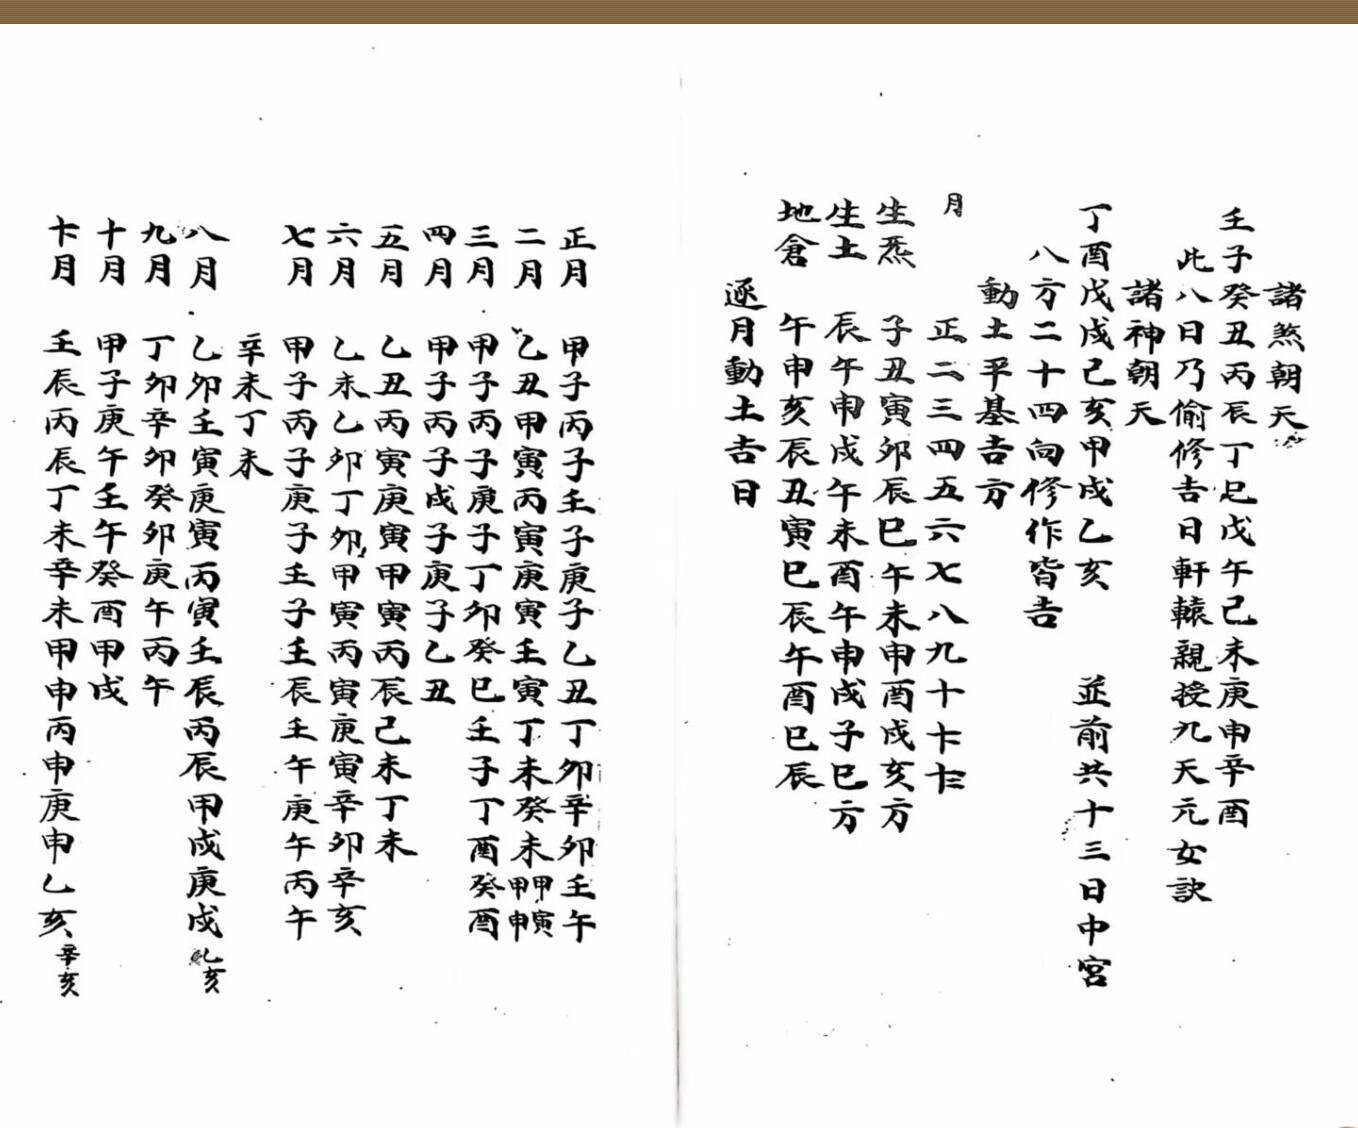 諸煞朝天
壬子癸丑丙辰丁巳戊午己未庚申辛酉
此八日乃偷修吉日軒轅親授九天元女訣
諸神朝天
丁酉戊戌己亥甲戌乙亥 並前共十三日中宮
八方二十四向修作皆吉
動土平基吉方
月 正二三四五六七八九十十一十二
生炁 子丑寅卯辰巳午未申酉戌亥方
生土 辰午申戌午未酉午申戌子巳方
地倉 午申亥辰丑寅巳辰午酉巳辰
逐月動土吉日
正月 甲子丙子壬子庚子乙丑丁卯辛卯壬午
二月 乙丑甲寅丙寅庚寅壬寅丁未癸未甲寅甲申
三月 甲子丙子庚子丁卯癸巳壬子丁酉癸酉
四月 甲子丙子戊子庚子乙丑
五月 乙丑丙寅庚寅甲寅丙辰己未丁未
六月 乙未乙卯丁卯甲寅丙寅庚寅辛卯辛亥
七月 甲子丙子庚子壬子壬辰壬午庚午丙午
辛未丁未
八月 乙卯壬寅庚寅丙寅壬辰丙辰甲戌庚戌乙亥
九月 丁卯辛卯癸卯庚午丙午
十月 甲子庚午壬午癸酉甲戌
十一月 壬辰丙辰丁未辛未甲申丙申庚申乙亥辛亥